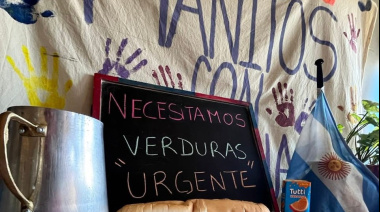 MANITOS
CON
NECESITAMOS
VERDURAS
"URGENTE"
Tutti